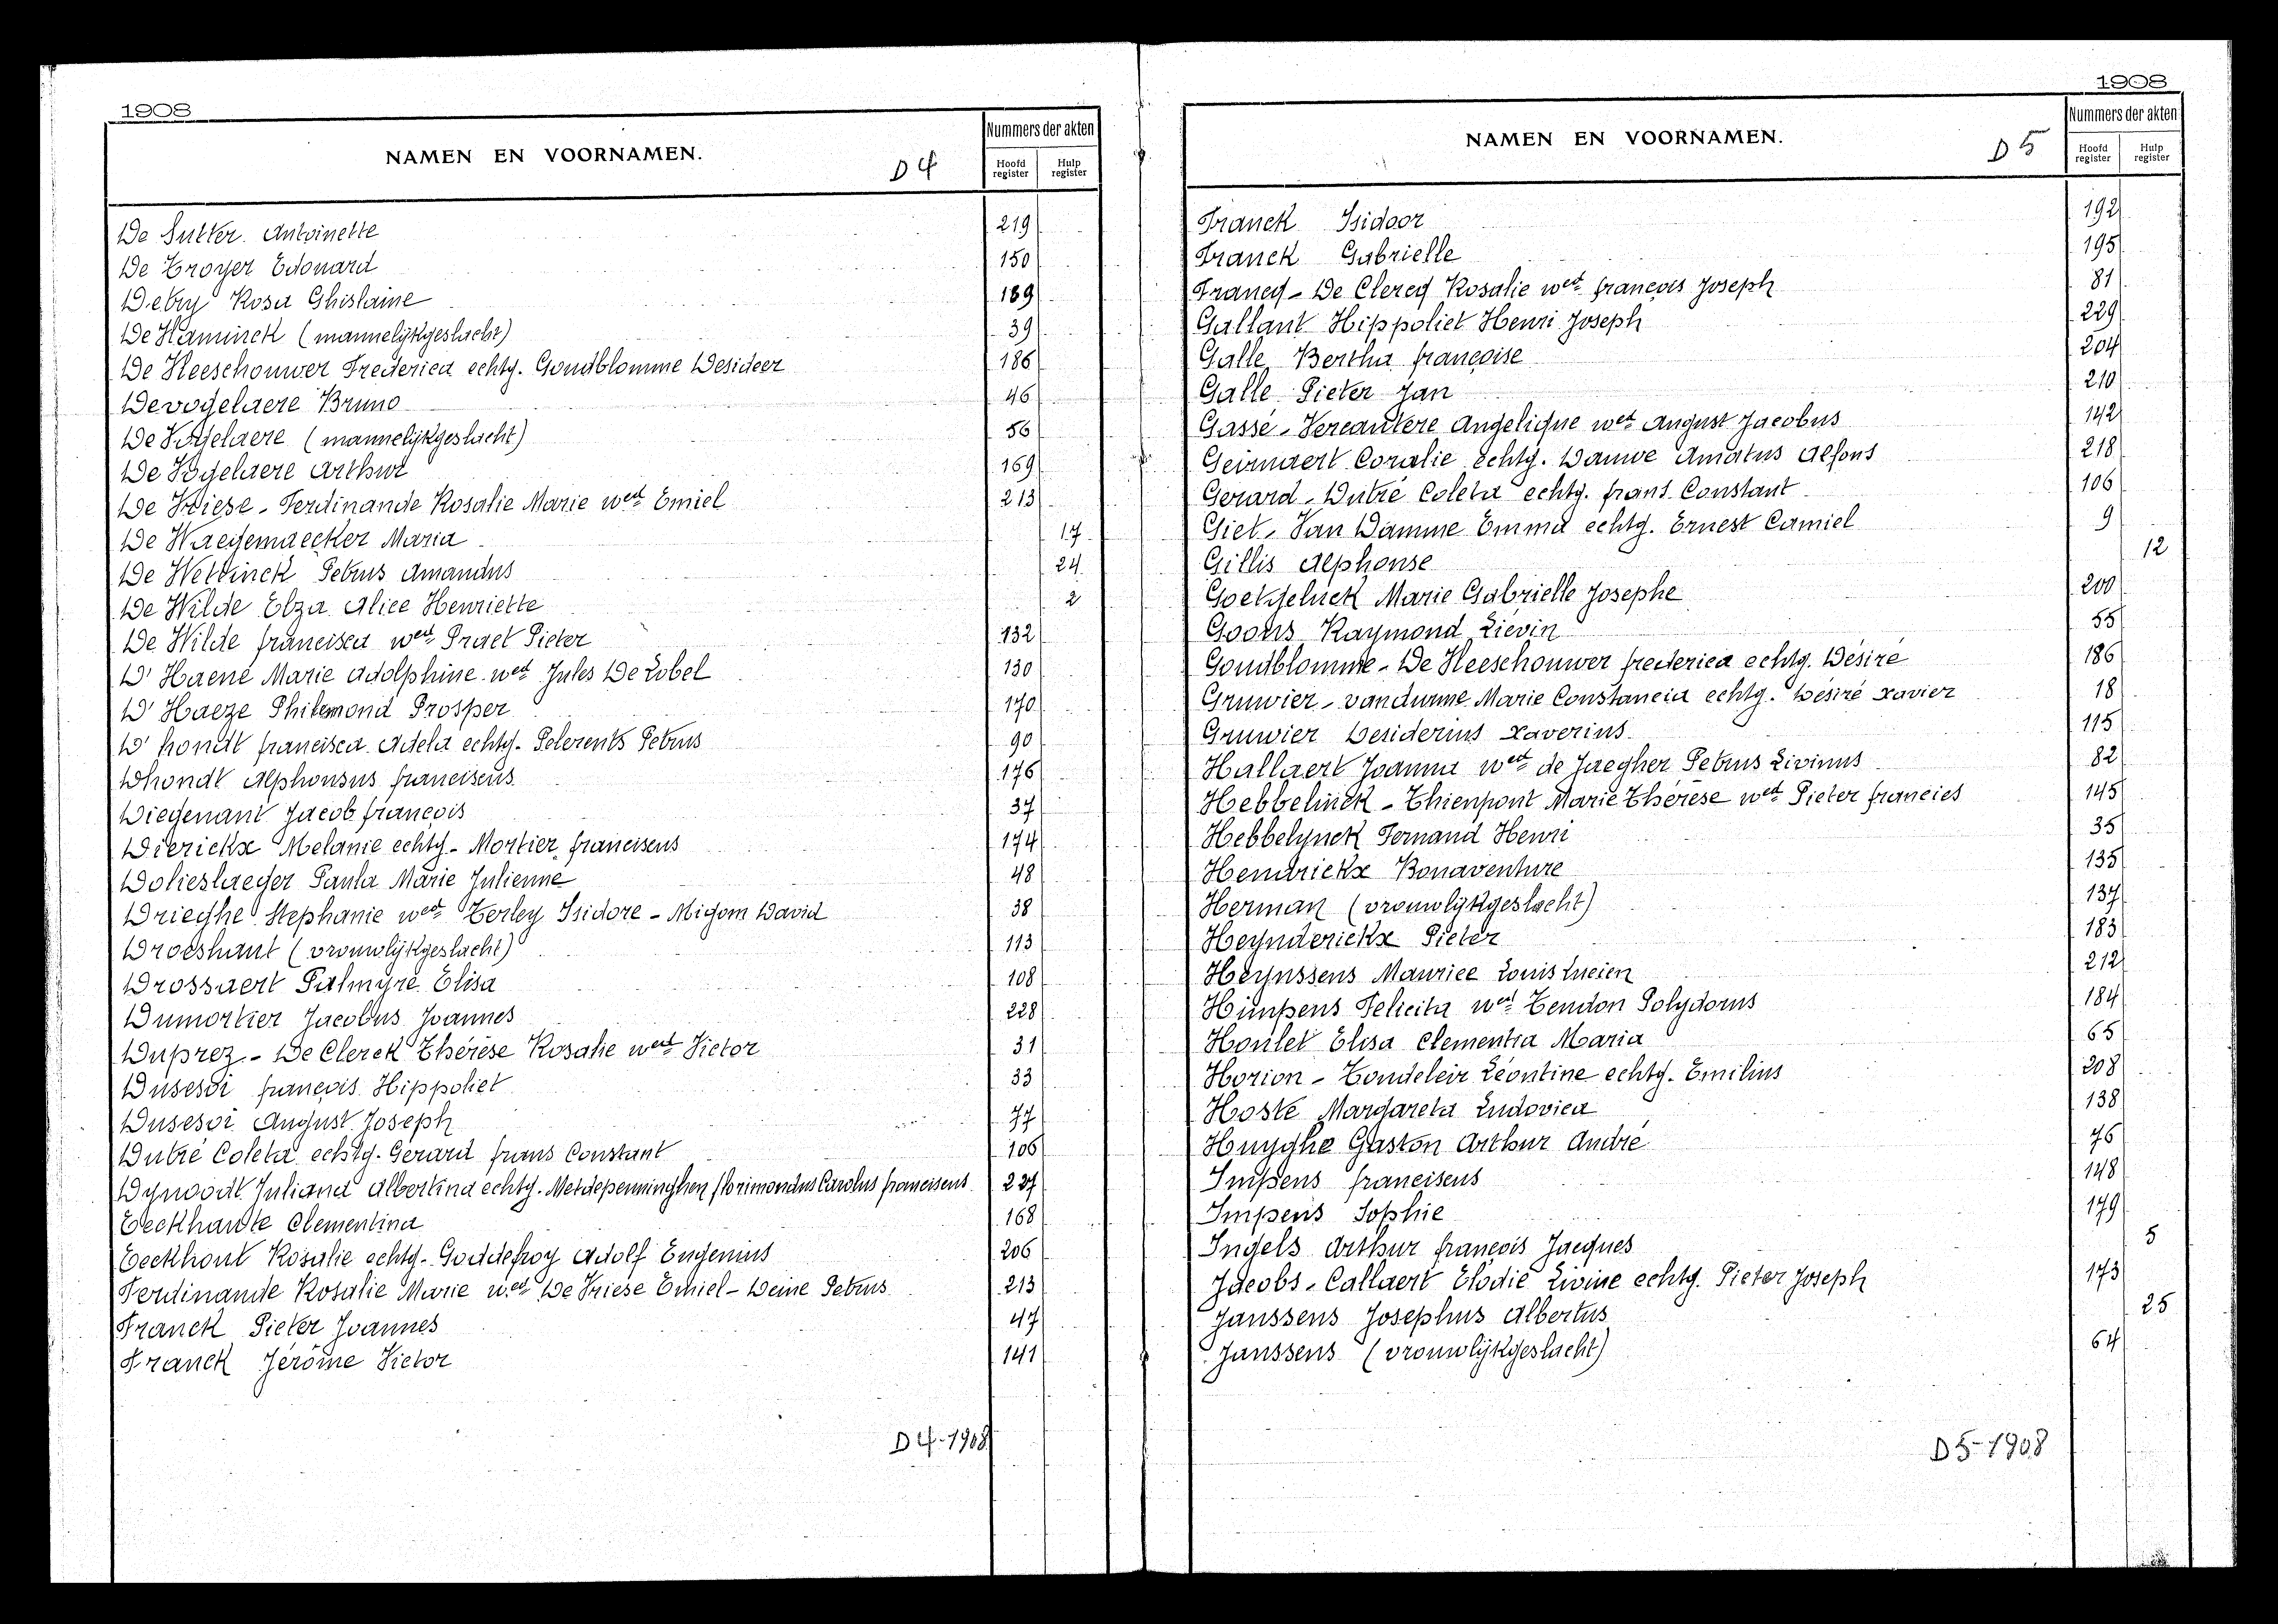 1908
NAMEN EN VOORNAMEN. D4
Nummers der akten
Hoofd register
Hulp register
De Sutter Antoinette 219
De Troyer Edouard 150
Detry Rosa Ghislaine 189
De Vaminck (mannelijkgeslacht) 39
De Vleeschouwer Frederica echtg. Goudblomme Desideer 186
Devogelaere Bruno 46
De Vogelaere (mannelijkgeslacht) 56
De Vogelaere Arthur 169
De Vriese - Ferdinande Rosalie Marie wed. Emiel 213
De Waegemaecker Maria 17
De Wettinck Petrus Amandus 24
De Wilde Elza Alice Henriette 2
De Wilde francisca wed. Praet Pieter 132
D' Haene Marie Adolphine wed. Jules De Lobel 130
D' Haeze Philemond Prosper 170
D' hondt francisca Adela echtg. Pelerents Petrus 90
Dhondt Alphonsus franciscus 176
Diegenant Jacob françois 37
Dierickx Melanie echtg. Mortier franciscus 174
Dolieslaeger Paula Marie Julienne 48
Drieghe Stephanie wed. Terley Isidore - Migom David 38
Droeshaut (vrouwlijkgeslacht) 113
Drossaert Palmyre Elisa 108
Dumortier Jacobus Joannes 228
Duprez - De Clerck Thérèse Rosalie wed. Victor 31
Dusesoi françois Hippoliet 33
Dusesoi August Joseph 77
Dutré Coleta echtg. Gerard frans Constant 106
Dynoodt Juliana Albertina echtg. Metdepenninghen florimondus Carolus franciscus 227
Eeckhaute Clementina 168
Eeckhout Rosalie echtg. Goddefroy Adolf Eugenius 206
Ferdinande Rosalie Marie wed. De Vriese Emiel - Deine Petrus 213
Franck Pieter Joannes 47
Franck Jérôme Victor 141
D4-1908
1908
NAMEN EN VOORNAMEN. D5
Nummers der akten
Hoofd register
Hulp register
Franck Isidoor 192
Franck Gabrielle 195
Francq - De Clercq Rosalie wed. françois Joseph 81
Gallant Hippoliet Henri Joseph 229
Galle Bertha françoise 204
Galle Pieter Jan 210
Gassé - Vercautere Angelique wed. August Jacobus 142
Geirnaert Coralie echtg. Dauwe Amatus Alfons 218
Gerard - Dutré Coleta echtg. frans Constant 106
Giet - Van Damme Emma echtg. Ernest Camiel 9
Gillis Alphonse 12
Goetgeluck Marie Gabrielle Josephe 200
Goons Raymond Liévin 55
Goudblomme - De Vleeschouwer frederica echtg. Désiré 186
Gruwier - vandurme Marie Constancia echtg. Désiré Xavier 18
Gruwier Desiderius Xaverius 115
Hallaert Joanna wed. de Jaegher Petrus Livinus 82
Hebbelinck - Thienpont Marie Thérèse wed. Pieter francies 145
Hebbelynck Fernand Henri 35
Hendrickx Bonaventure 135
Herman (vrouwlijkgeslacht) 137
Heynderickx Pieter 183
Heynssens Maurice Louis Lucien 212
Himpens Felicita wed. Tendon Polydorus 184
Houlet Elisa Clementia Maria 65
Horion - Tondeleir Léontine echtg. Emilius 208
Hoste Margareta Ludovica 138
Huyghe Gaston Arthur André 76
Impens franciscus 148
Impens Sophie 179
Ingels Arthur françois Jacques 5
Jacobs - Callaert Elodie Livine echtg. Pieter Joseph 173
Janssens Josephus Albertus 25
Janssens (vrouwlijkgeslacht) 64
D5-1908